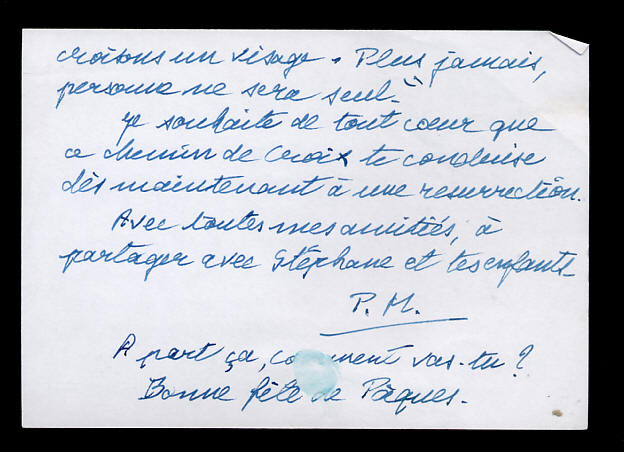 croisons un visage. Plus jamais,
personne ne sera seul."
Je souhaite de tout cœur que
ce chemin de croix te conduise
dès maintenant à une resurrection.
Avec toutes mes amitiés, à
partager avec Stéphane et tes enfants
P. M.
A part ça, comment vas-tu ?
Bonne fête de Pâques.